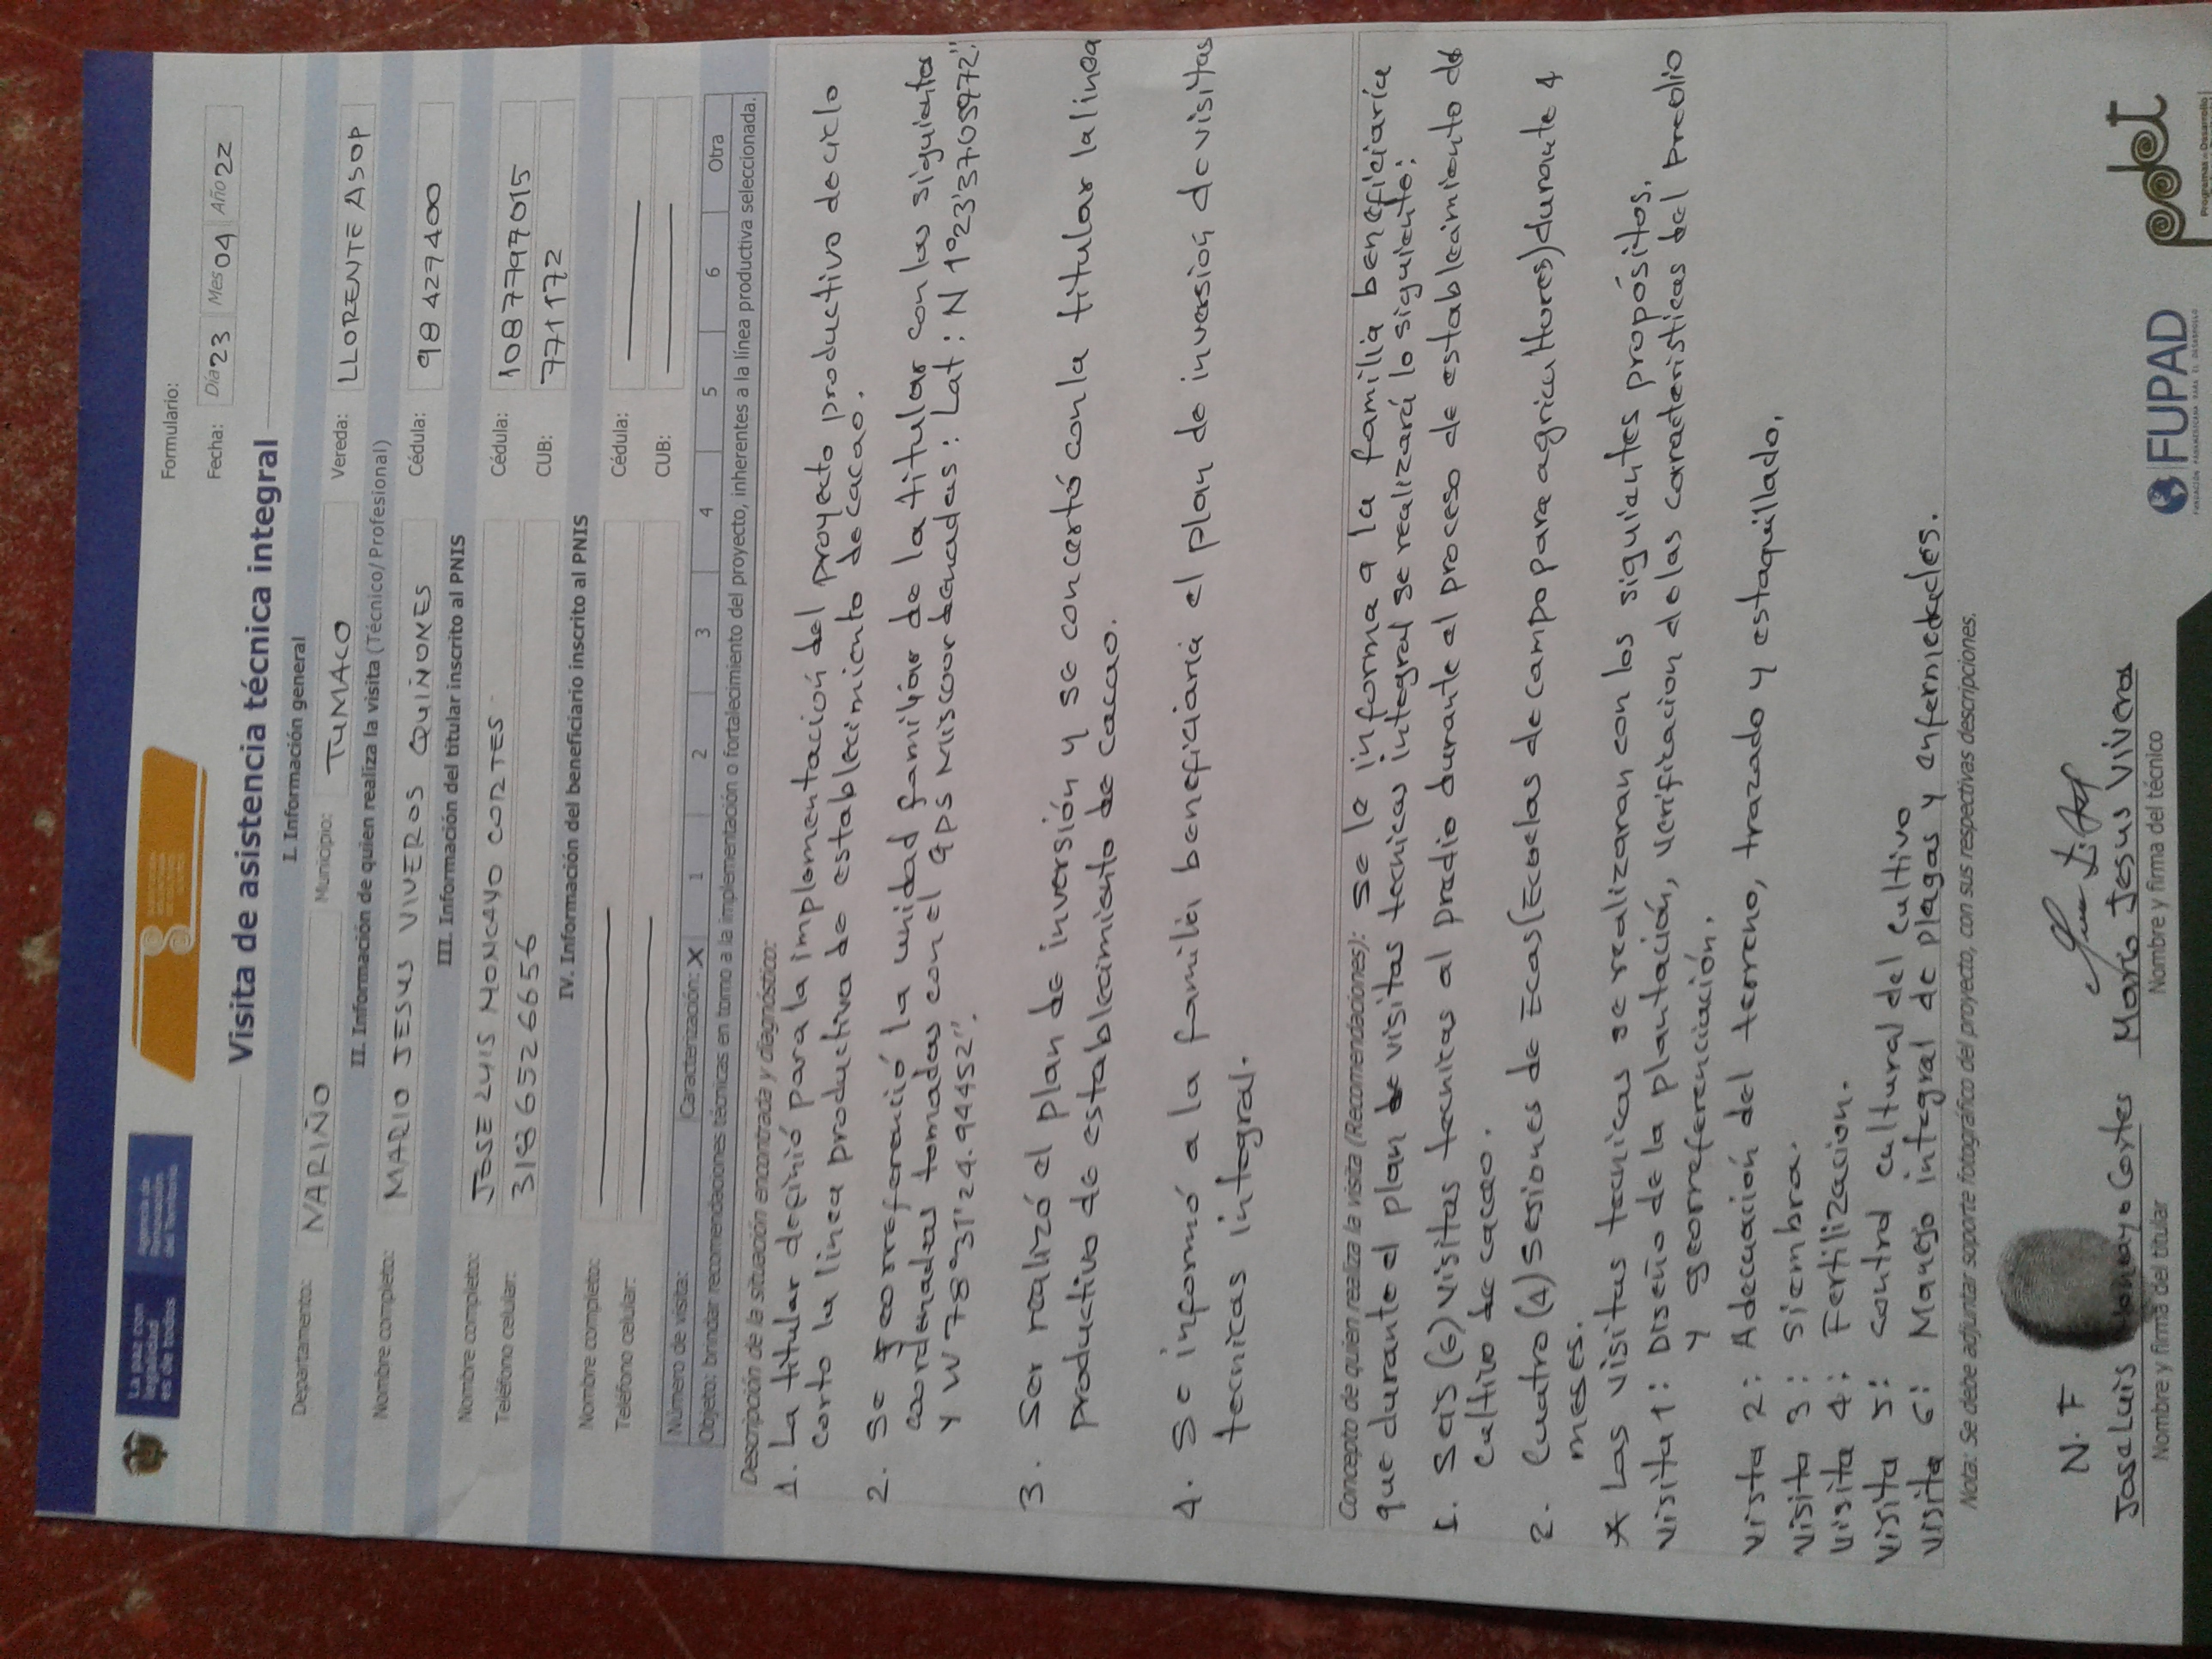 La paz con
legalidad
es de todos
Agencia de
Renovación
del Territorio
Formulario:
Fecha: Día 23 Mes 04 Año 22
Visita de asistencia técnica integral
I. Información general
Departamento: NARIÑO Municipio: TUMACO Vereda: LLORENTE ASOP
II. Información de quien realiza la visita (Técnico/ Profesional)
Nombre completo: MARIO JESUS VIVEROS QUIÑONES Cédula: 98 427400
III. Información del titular inscrito al PNIS
Nombre completo: JOSE LUIS MONCAYO CORTES Cédula: 1087797015
Teléfono celular: 3186526656 CUB: 771172
IV. Información del beneficiario inscrito al PNIS
Nombre completo: Cédula:
Teléfono celular: CUB:
Número de visita: Caracterización: X 1 2 3 4 5 6 Otra
Objeto: brindar recomendaciones técnicas en torno a la implementación o fortalecimiento del proyecto, inherentes a la línea productiva seleccionada.
Descripción de la situación encontrada y diagnóstico:
1. La titular definió para la implementación del proyecto productivo de ciclo
corto la linea productiva de establecimiento de cacao.
2. Se georreferenció la unidad familiar de la titular con las siguientes
coordenadas tomadas con el gps Miscoordenadas: Lat: N 1°23'37.05972"
y W 78°31'24.94452".
3. Ser realizó el plan de inversión y se concertó con la titular la linea
productivo de establecimiento de cacao.
4. Se informó a la familia beneficiaria el plan de inversión de visitas
tecnicas integral.
Concepto de quien realiza la visita (Recomendaciones): Se le informa a la familia beneficiaria
que durante el plan de visitas tecnicas integral se realizará lo siguiente:
1. Seis (6) visitas tecnicas al predio durante el proceso de establecimiento de
cultivo de cacao.
2. Cuatro (4) sesiones de Ecas (Ecuelas de campo para agricultores) durante 4
meses.
* Las visitas tecnicas se realizaran con los siguientes propósitos.
Visita 1: Diseño de la plantación, verificacion de las caracteristicas del predio
y georreferenciación.
Vista 2: Adecuación del terreno, trazado y estaquillado.
Visita 3: siembra.
Visita 4: Fertilizacion.
Visita 5: control cultural del cultivo
Visita 6: Manejo integral de plagas y enfermedades.
Nota: Se debe adjuntar soporte fotográfico del proyecto, con sus respectivas descripciones.
N.F
Jose Luis Moncayo Cortes Mario Jesus Viveros
Nombre y firma del titular Nombre y firma del técnico
FUPAD
FUNDACIÓN PANAMERICANA PARA EL DESARROLLO
pdet
Programas de Desarrollo